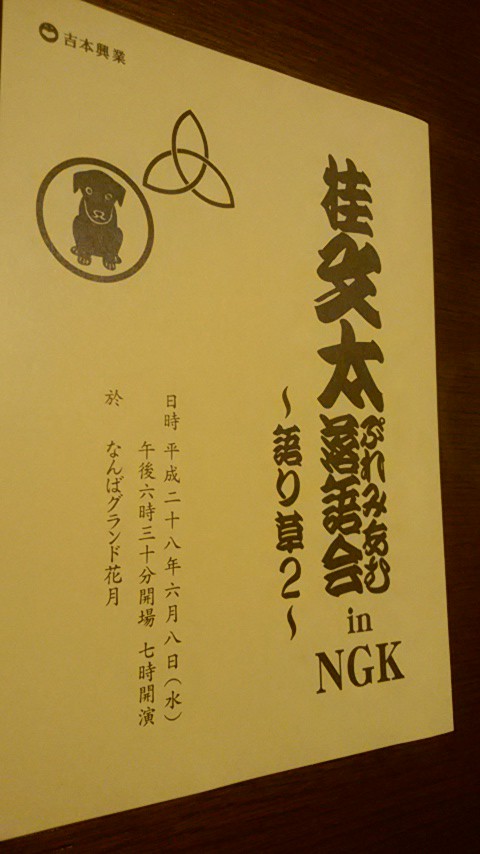 吉本興業
桂文太落語会 in NGK
ぷれみあむ
～語り草2～
日時 平成二十八年六月八日(水)
午後六時三十分開場 七時開演
於 なんばグランド花月